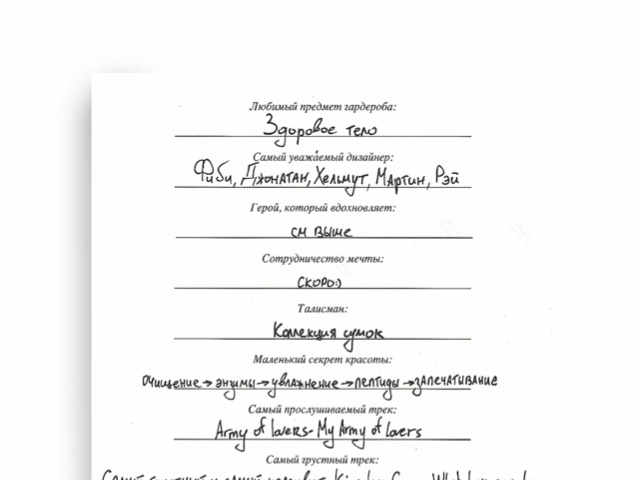 Любимый предмет гардероба:
Здоровое тело
Самый уважаемый дизайнер:
Фиби, Джонатан, Хельмут, Мартин, Рэй
Герой, который вдохновляет:
см выше
Сотрудничество мечты:
скоро:)
Талисман:
Коллекция сумок
Маленький секрет красоты:
очищение → энзимы → увлажнение → пептиды → запечатывание
Самый прослушиваемый трек:
Army of lovers - My Army of Lovers
Самый грустный трек: